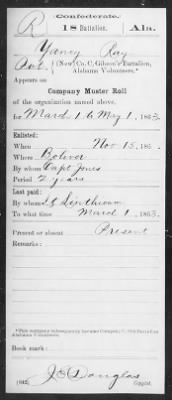 Confederate.
R 18 Battalion. Ala.
Yancy Ray
Pvt. (New) Co. C, Gibson's Battalion,
Alabama Volunteers.*
Appears on
Company Muster Roll
of the organization named above,
for March 1 to May 1, 1863.
Enlisted:
When Nov 15, 186
Where Boliver
By whom Capt Jones
Period 2 years
Last paid:
By whom
To what time March 1, 1863.
Present or absent Present
Remarks:
*This company subsequently became Company C, 18th Battalion
Alabama Volunteers.
Book mark:
(642) J E Douglas
Copyist.